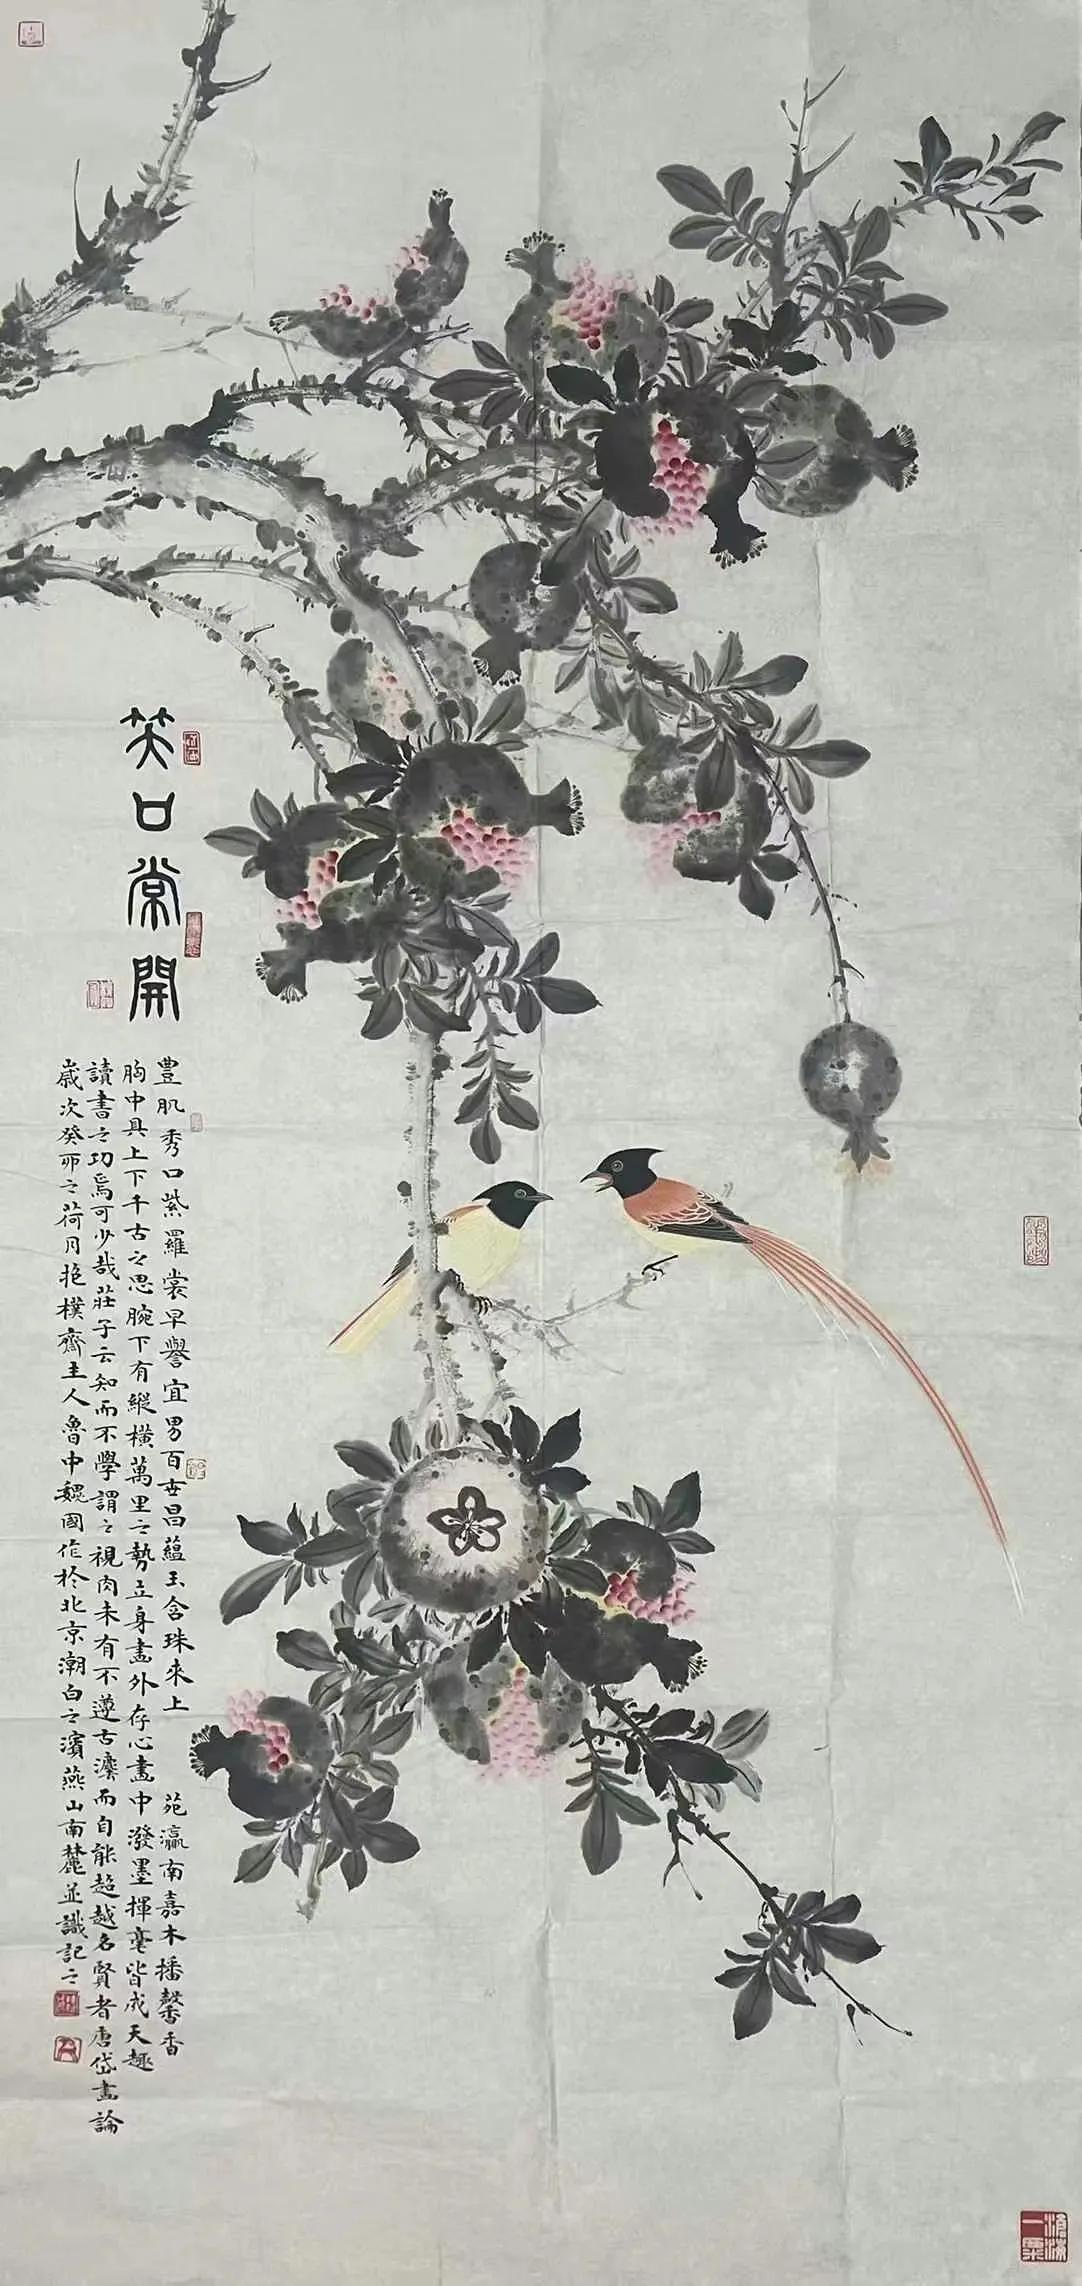 笑口常開
豐肌秀口紫羅裳早譽宜男百世昌蘊玉含珠來上苑瀛南嘉木播馨香
胸中具上下千古之思腕下有縱橫萬里之勢立身畫外存心畫中潑墨揮毫皆成天趣
讀書之功焉可少哉莊子云知而不學謂之視肉未有不遵古灋而自能超越名賢者唐岱畫論
歲次癸卯之荷月抱樸齋主人魯中魏國作於北京潮白之濱燕山南麓並識記之
滄海一粟